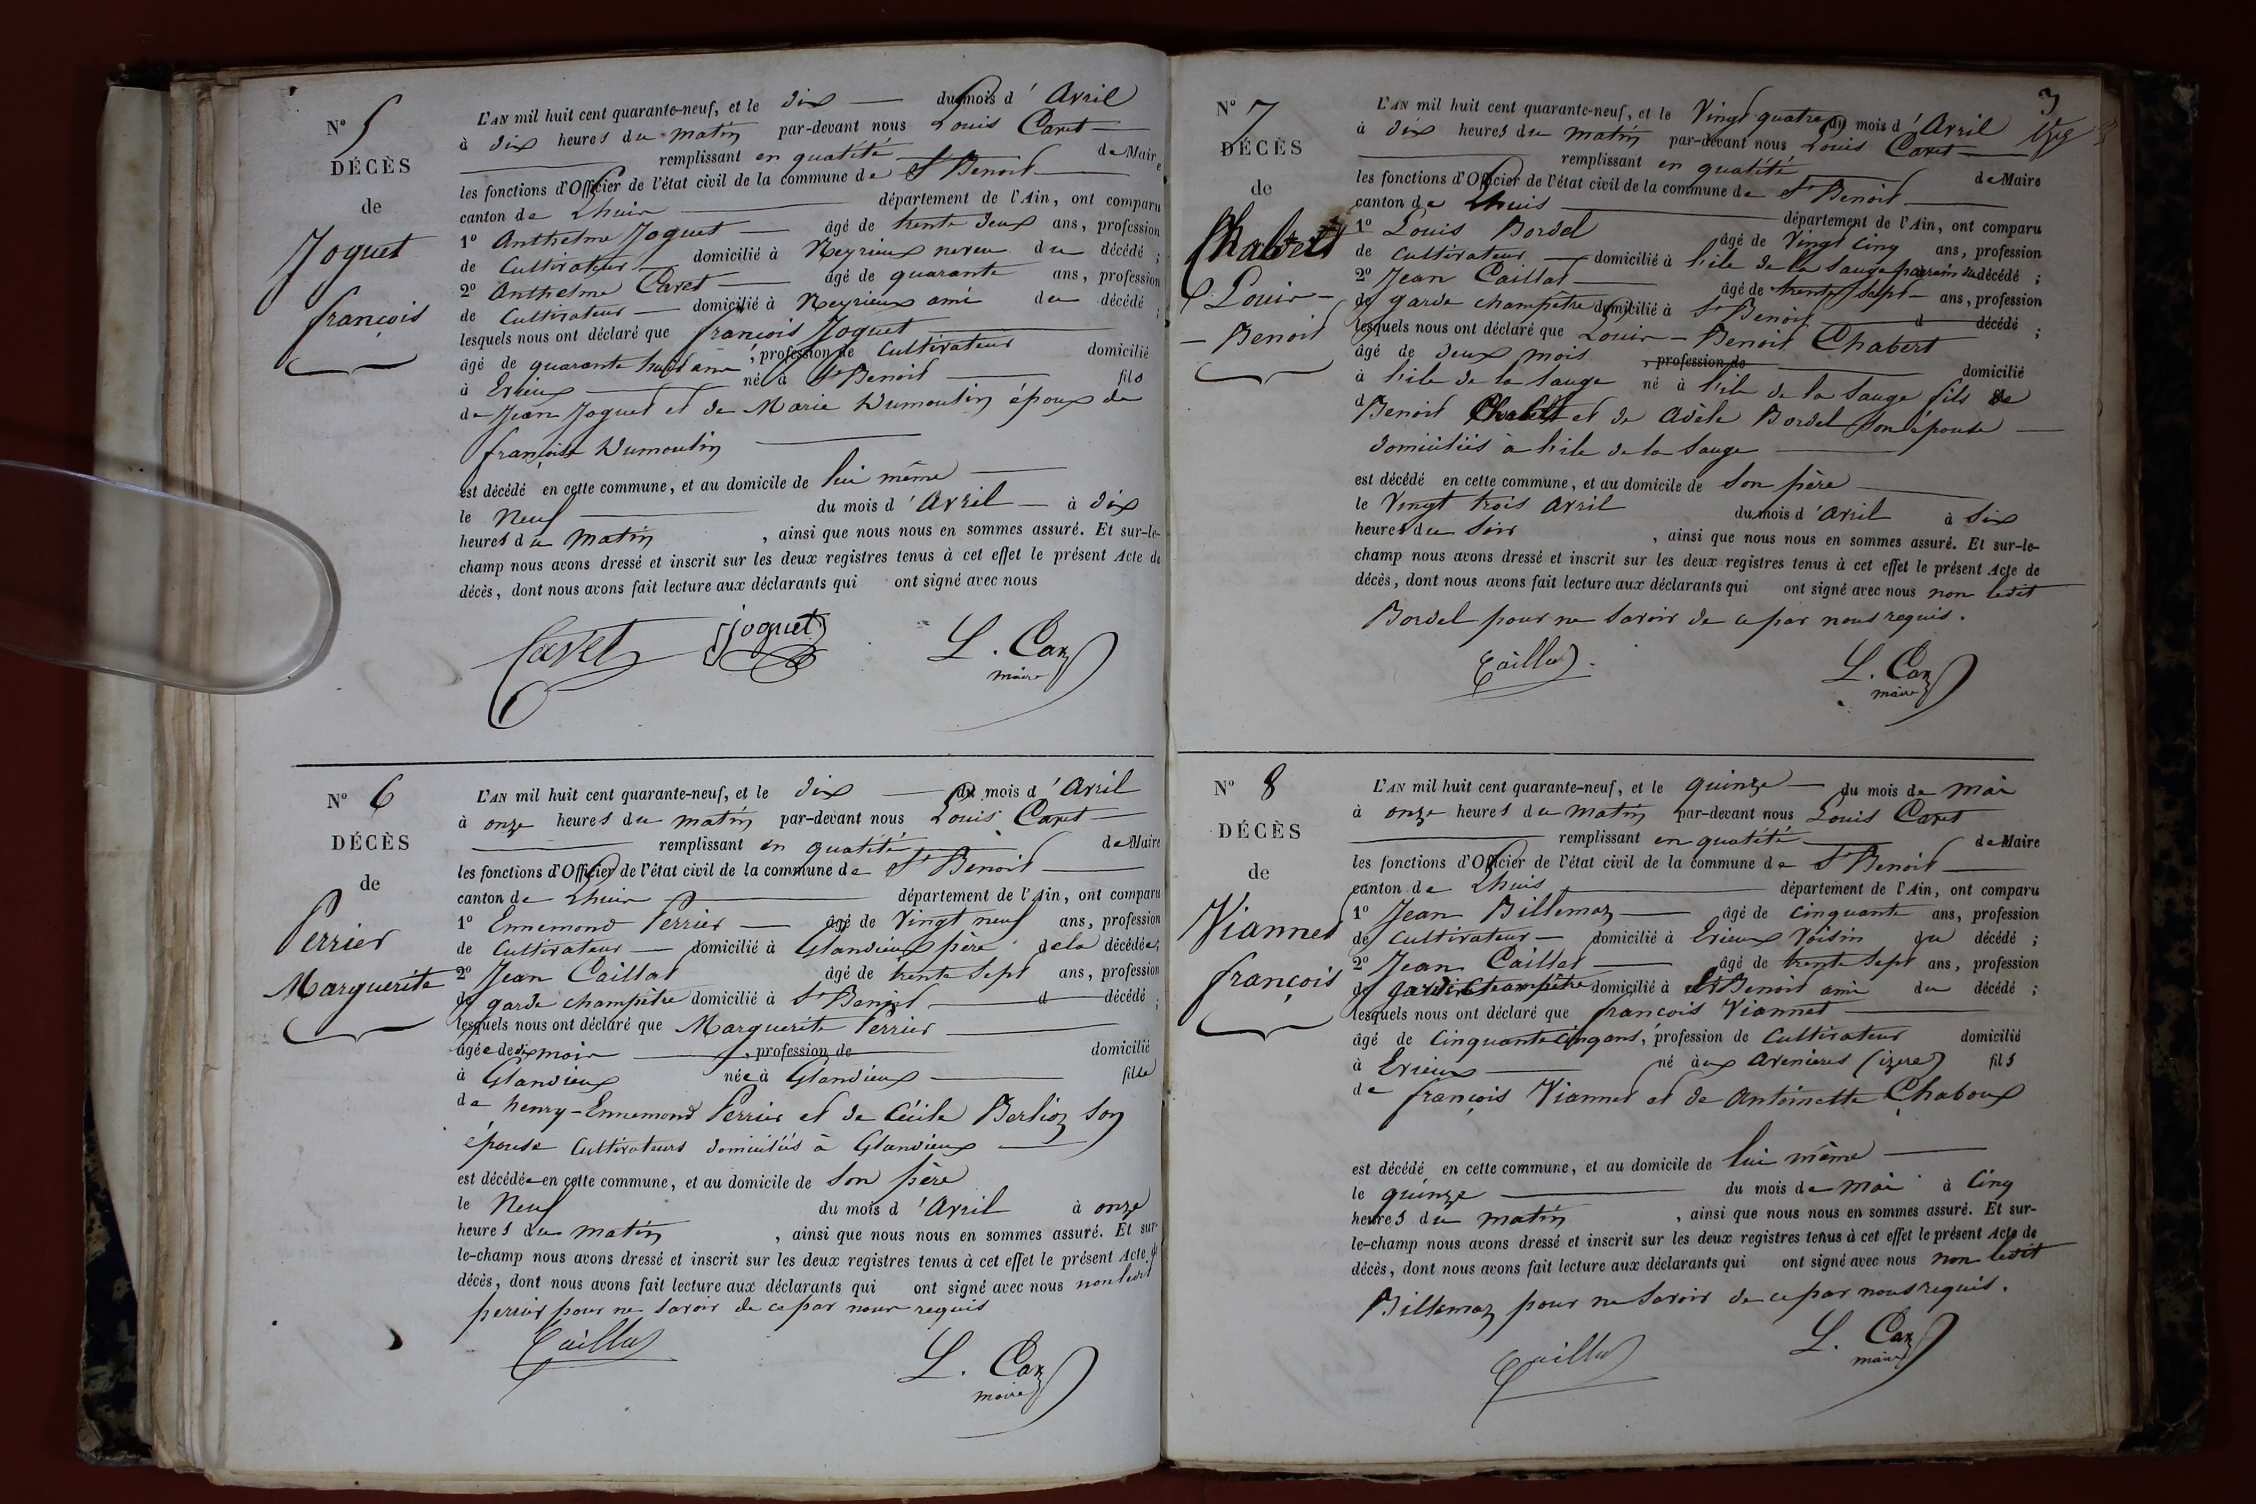 N° 5
DÉCÈS
de
Joguet
françois
L'AN mil huit cent quarante-neuf, et le dix du mois d'Avril
à dix heures du matin par-devant nous Louis Caret
remplissant en qualité de Maire
les fonctions d'Officier de l'état civil de la commune de St Benoit
canton de Lhuis département de l'Ain, ont comparu
1° Anthelme Joguet âgé de trente deux ans, profession
de Cultivateur domicilié à Neyrieux neveu du décédé ;
2° Anthelme Caret âgé de quarante ans, profession
de Cultivateur domicilié à Neyrieux ami du décédé ;
lesquels nous ont déclaré que françois Joguet
âgé de quarante huit ans, profession de Cultivateur domicilié
à Evieux né à St Benoit fils
de Jean Joguet et de Marie Dumoulin époux de
françoise Dumoulin
est décédé en cette commune, et au domicile de lui même
le Neuf du mois d'Avril à dix
heures du matin, ainsi que nous nous en sommes assuré. Et sur-le-
champ nous avons dressé et inscrit sur les deux registres tenus à cet effet le présent Acte de
décès, dont nous avons fait lecture aux déclarants qui ont signé avec nous
Caret joguet L. Caret
maire
N° 6
DÉCÈS
de
Perrier
Marguerite
L'AN mil huit cent quarante-neuf, et le dix du mois d'Avril
à onze heures du matin par-devant nous Louis Caret
remplissant en qualité de Maire
les fonctions d'Officier de l'état civil de la commune de St Benoit
canton de Lhuis département de l'Ain, ont comparu
1° Ennemond Perrier âgé de Vingt neuf ans, profession
de Cultivateur domicilié à Glandieux père de la décédée ;
2° Jean Caillat âgé de trente sept ans, profession
de garde champêtre domicilié à St Benoit d décédé ;
lesquels nous ont déclaré que Marguerite Perrier
âgée de dix mois, profession de domicilié
à Glandieux née à Glandieux fille
de henry-Ennemond Perrier et de Cécile Berlioz son
épouse Cultivateurs domiciliés à Glandieux
est décédée en cette commune, et au domicile de Son père
le Neuf du mois d'Avril à onze
heures du matin, ainsi que nous nous en sommes assuré. Et sur-
le-champ nous avons dressé et inscrit sur les deux registres tenus à cet effet le présent Acte de
décès, dont nous avons fait lecture aux déclarants qui ont signé avec nous non ledit
perrier pour ne savoir de ce par nous requis
Caillat L. Caret
maire
3
N° 7
DÉCÈS
de
Chabert
Louis-
Benoit
L'AN mil huit cent quarante-neuf, et le Vingt quatre du mois d'Avril
à dix heures du matin par-devant nous Louis Caret
remplissant en qualité de Maire
les fonctions d'Officier de l'état civil de la commune de St Benoit
canton de Lhuis département de l'Ain, ont comparu
1° Louis Bordel âgé de Vingt cinq ans, profession
de Cultivateur domicilié à l'ile de la Sauge parrain du décédé ;
2° Jean Caillat âgé de trente sept ans, profession
de garde champêtre domicilié à St Benoit d décédé ;
lesquels nous ont déclaré que Louis-Benoit Chabert
âgé de deux mois, profession de domicilié
à l'ile de la Sauge né à l'ile de la Sauge fils de
d Benoit Chabert et de Adèle Bordel Son épouse
domiciliés à l'ile de la Sauge
est décédé en cette commune, et au domicile de Son père
le Vingt trois Avril du mois d'Avril à Six
heures du Soir, ainsi que nous nous en sommes assuré. Et sur-le-
champ nous avons dressé et inscrit sur les deux registres tenus à cet effet le présent Acte de
décès, dont nous avons fait lecture aux déclarants qui ont signé avec nous non ledit
Bordel pour ne Savoir de ce par nous requis.
Caillat L. Caret
maire
N° 8
DÉCÈS
de
Viannet
françois
L'AN mil huit cent quarante-neuf, et le quinze du mois de mai
à onze heures du matin par-devant nous Louis Caret
remplissant en qualité de Maire
les fonctions d'Officier de l'état civil de la commune de St Benoit
canton de Lhuis département de l'Ain, ont comparu
1° Jean Billemaz âgé de cinquante ans, profession
de Cultivateur domicilié à Evieux Voisin du décédé ;
2° Jean Caillat âgé de trente Sept ans, profession
de garde champêtre domicilié à St Benoit ami du décédé ;
lesquels nous ont déclaré que françois Viannet
âgé de Cinquante cinq ans, profession de Cultivateur domicilié
à Evieux né aux Avenières (izere) fils
de françois Viannet et de Antoinette Chaboux
est décédé en cette commune, et au domicile de lui même
le quinze du mois de mai à Cinq
heures du matin, ainsi que nous nous en sommes assuré. Et sur-
le-champ nous avons dressé et inscrit sur les deux registres tenus à cet effet le présent Acte de
décès, dont nous avons fait lecture aux déclarants qui ont signé avec nous non ledit
Billemaz pour ne Savoir de ce par nous requis.
Caillat L. Caret
maire